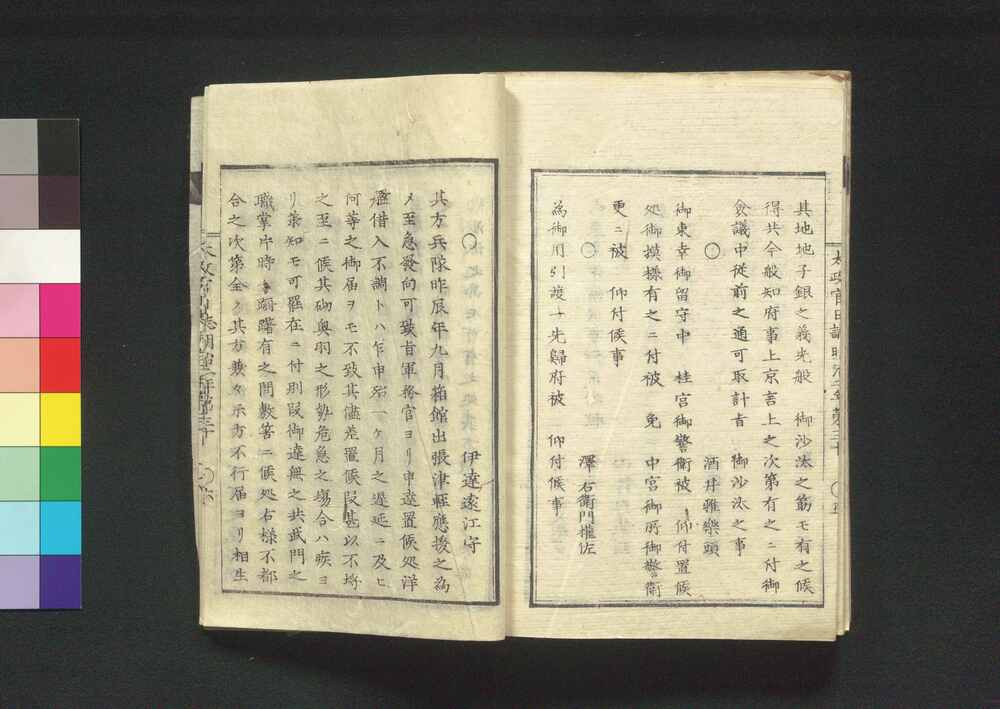 其地地子銀之義先般　御沙汰之筋モ有之候
得共今般知府事上京言上之次第有之ニ付御
僉議中従前之通可取計旨　御沙汰之事
○
酒井雅樂頭
御東幸御留守中　桂宮御警衛被　仰付置候
処御摸様有之ニ付被　免　中宮御所御警衛
更ニ被　仰付候事
○
澤右衛門權佐
為御用引渡一先歸府被　仰付候事
○
伊達遠江守
其方兵隊昨辰年九月箱館出張津軽應援之為
メ至急發向可致旨軍務官ヨリ申達置候処洋
艦借入不調トハ乍申殆一ヶ月之遅延ニ及ヒ
何等之御届ヲモ不致其儘差置候段甚以不埒
之至ニ候其砌奥羽之形勢危急之場合ハ疾ヨ
リ承知モ可罷在ニ付別段御達無之共武門之
職掌片時モ躊躇有之間敷筈ニ候処右様不都
合之次第全ク其方兼々示方不行届ヨリ相生
太政官日誌明治二年第三十